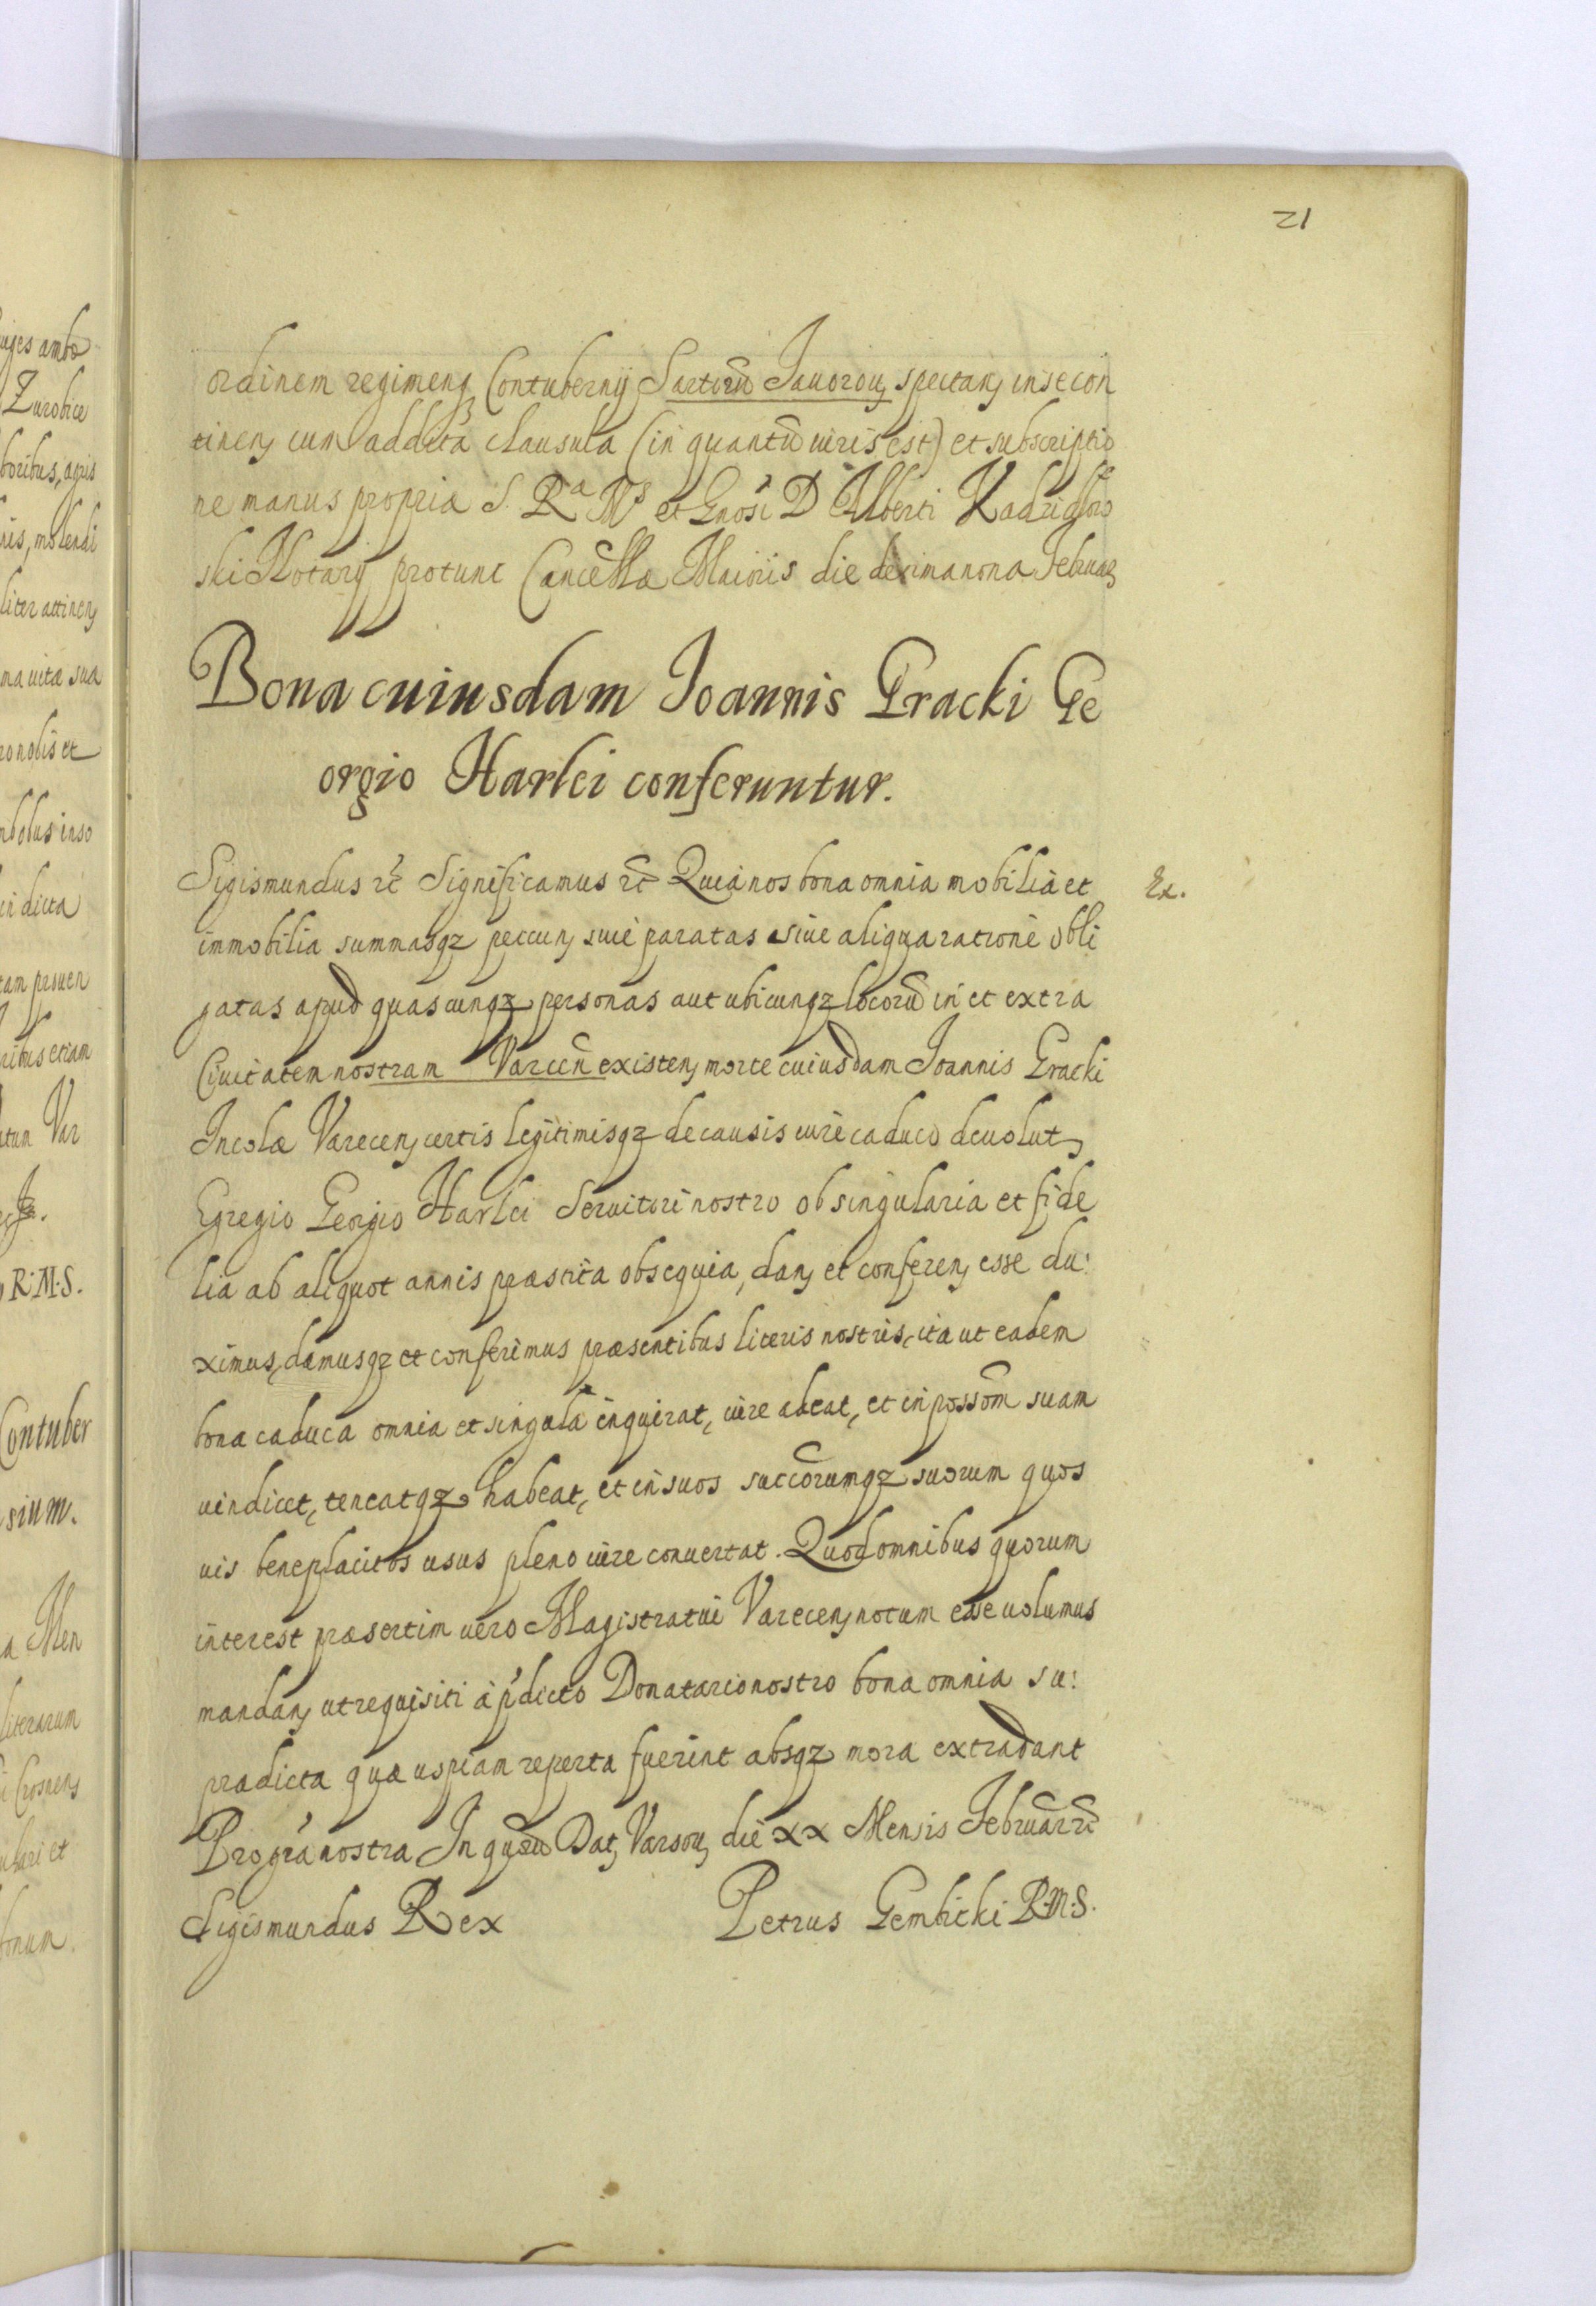 21
ordinem regimenq Contubernij Sartorū Iauorou spectan in se con
tinen cum addita clausula (in quantū iuris est) et subscriptio
ne manus propria S. Rᵃ Mˢ et Gnosi D Alberti Kadzidło
ski Notarij protunc Cancellæ Maioris die decimanona Februar
Bona cuiusdam Ioannis Gracki Ge
orgio Harlei conferuntur.
Sigismundus etc Significamus etc Quia nos bona omnia mobilia et
Ex.
immobilia summasqz peccun siue paratas siue aliqua ratione obli
gatas apud quascunqz personas aut ubicunqz locorū in et extra
Ciuitatem nostram Varecen existen morte cuiusdam Ioannis Gracki
Incolæ Varecen certis legitimisqz de causis iure caduco deuolut
Egregio Georgio Harlei Seruitori nostro ob singularia et fide
lia ab aliquot annis præstita obsequia, dan et conferen esse du:
ximus, damusqz et conferimus præsentibus literis nostris, ita ut eadem
bona caduca omnia et singula inquirat, iure adeat, et in possōm suam
uindicet, teneatqz habeat, et in suos succorumqz suorum quos
uis beneplacitos usus pleno iure conuertat. Quod omnibus quorum
interest præsertim uero Magistratui Varecen notum esse uolumus
mandan ut requisiti à pdicto Donatario nostro bona omnia su:
pradicta quæ uspiam reperta fuerint absqz mora extradant
Pro gra nostra In quorū Dat Varsou die XX Mensis Februar etc
Sigismundus Rex Petrus Gembicki R.M.S.